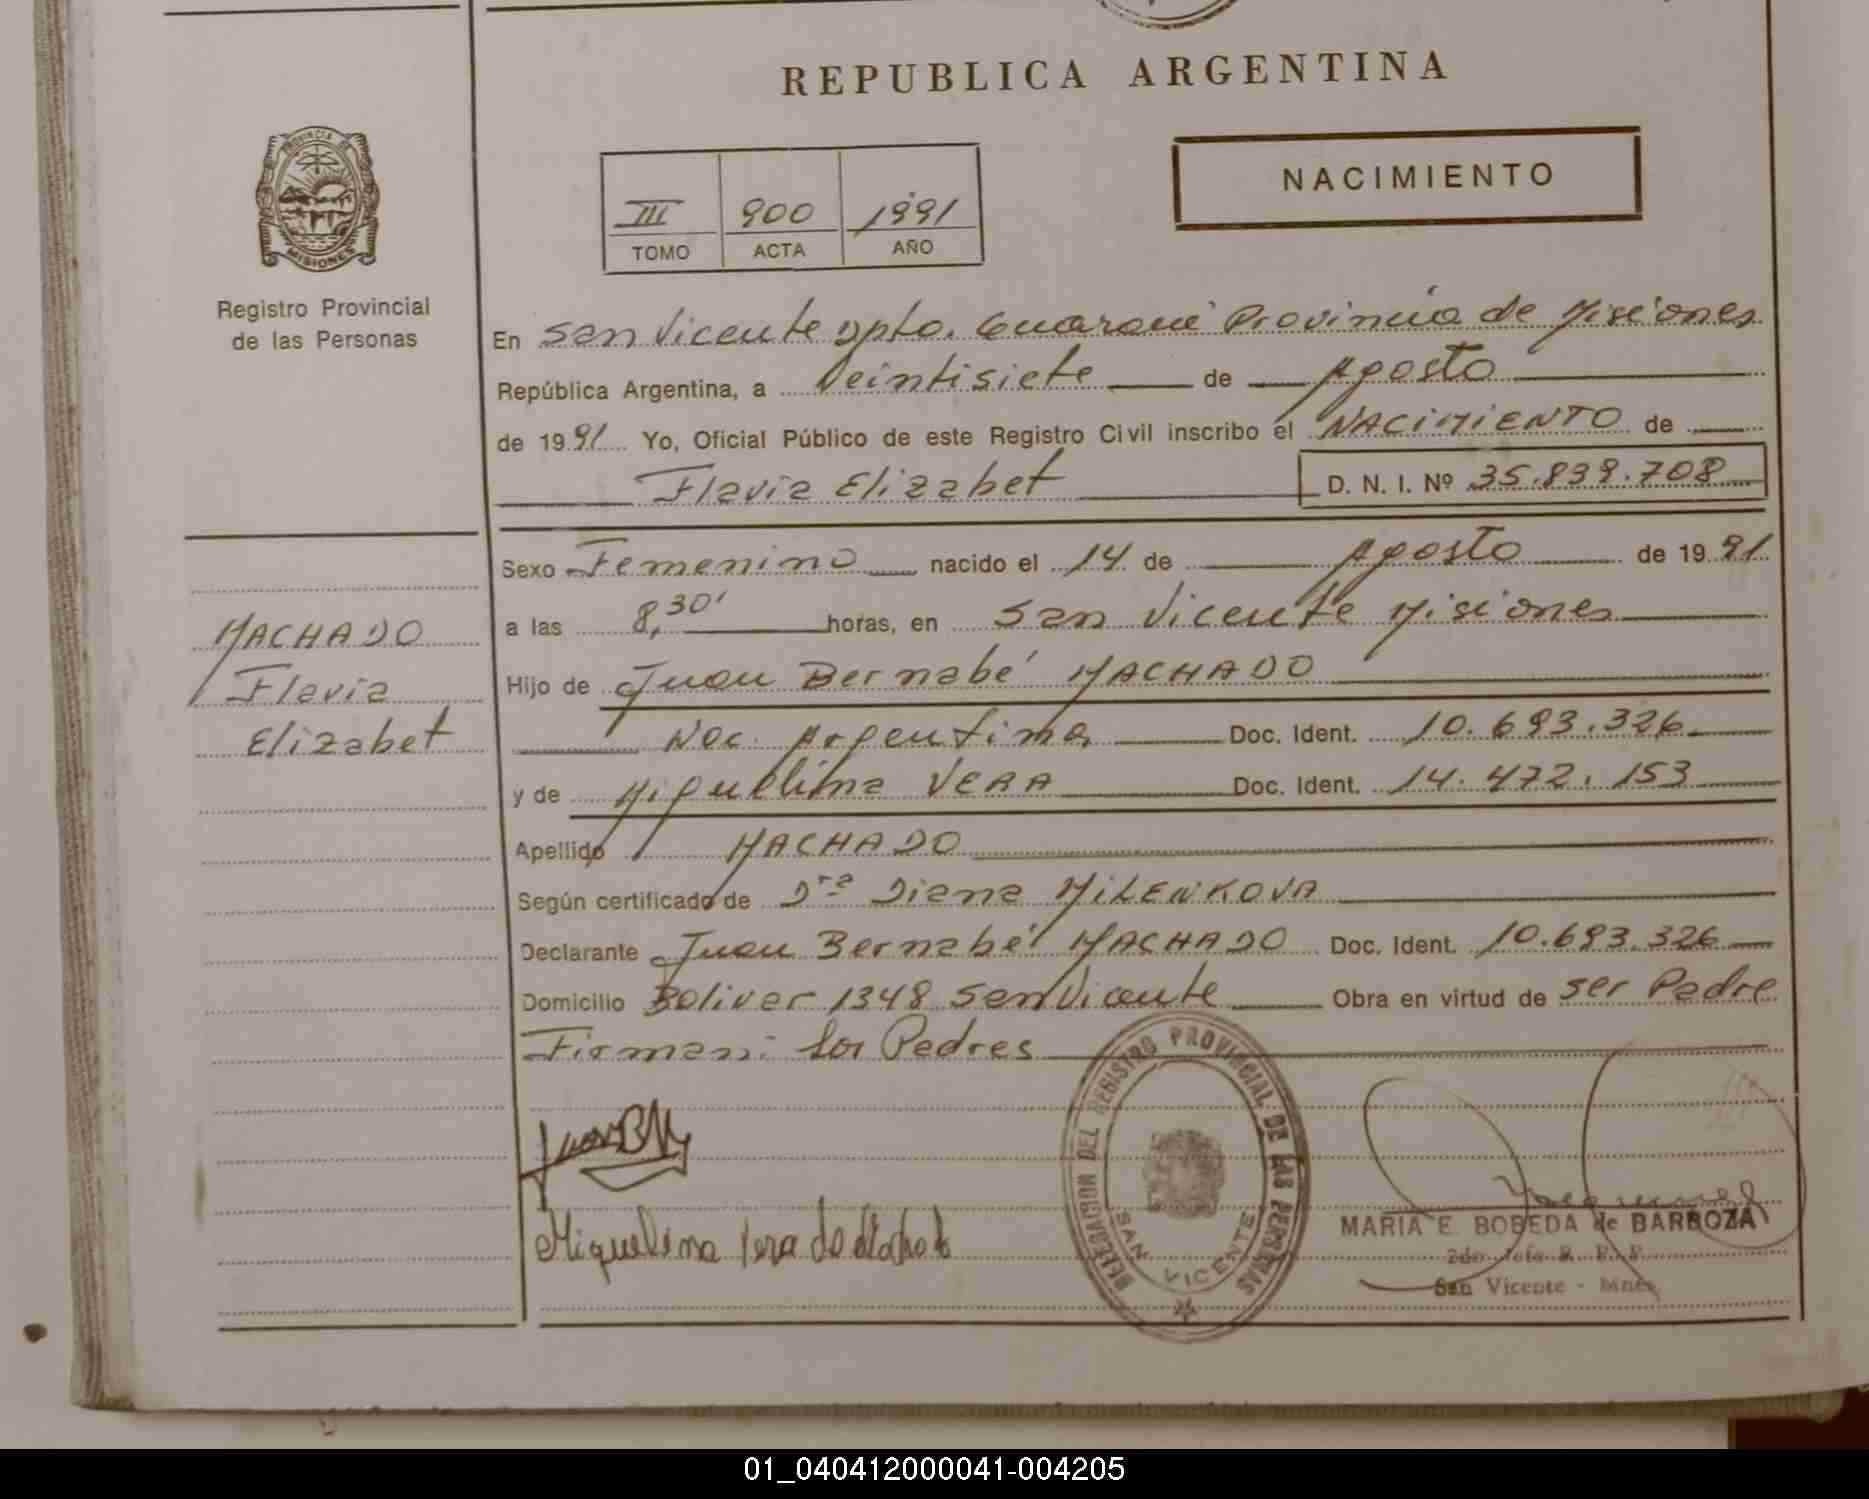 REPUBLICA ARGENTINA
PROVINCIA DE
MISIONES
Registro Provincial
de las Personas
III 900 1991
TOMO ACTA AÑO
NACIMIENTO
En San Vicente Dpto. Guaraní Provincia de Misiones
República Argentina, a Veintisiete de Agosto
de 1991 Yo, Oficial Público de este Registro Civil inscribo el NACIMIENTO de
Flavia Elizabet D. N. I. Nº 35.839.708
MACHADO
Flavia
Elizabet
Sexo Femenino nacido el 14 de Agosto de 1991
a las 8,30' horas, en San Vicente Misiones
Hijo de Juan Bernabé MACHADO
Nac. Argentina Doc. Ident. 10.693.326
y de Miguelina VERA Doc. Ident. 14.472.153
Apellido MACHADO
Según certificado de Dra Diana MILENKOVA
Declarante Juan Bernabé MACHADO Doc. Ident. 10.693.326
Domicilio Bolivar 1348 San Vicente Obra en virtud de ser Padre
Firman: los Padres
Juan BM
Miguelina Vera de Machado
DELEGACION DEL REGISTRO PROVINCIAL DE LAS PERSONAS
SAN VICENTE
MARIA E. BOBEDA de BARBOZA
2do Jefe R. P. P.
San Vicente - Mnes
01_040412000041-004205